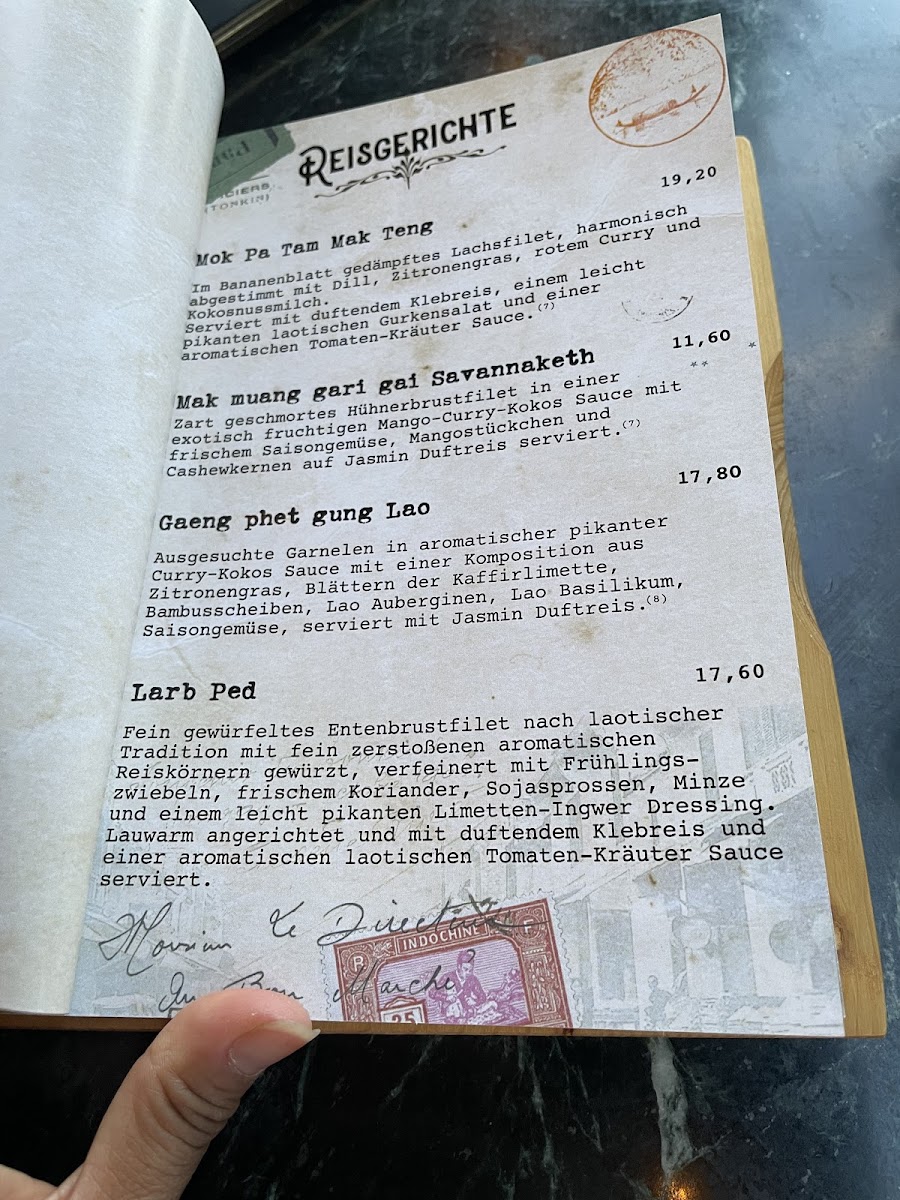 REISGERICHTE
(TONKIN)
19,20
Mok Pa Tam Mak Teng
Im Bananenblatt gedämpftes Lachsfilet, harmonisch
abgestimmt mit Dill, Zitronengras, rotem Curry und
Kokosnussmilch.
Serviert mit duftendem Klebreis, einem leicht
pikanten laotischen Gurkensalat und einer
aromatischen Tomaten-Kräuter Sauce.(7)
11,60
Mak muang gari gai Savannaketh
Zart geschmortes Hühnerbrustfilet in einer
exotisch fruchtigen Mango-Curry-Kokos Sauce mit
frischem Saisongemüse, Mangostückchen und
Cashewkernen auf Jasmin Duftreis serviert.(7)
17,80
Gaeng phet gung Lao
Ausgesuchte Garnelen in aromatischer pikanter
Curry-Kokos Sauce mit einer Komposition aus
Zitronengras, Blättern der Kaffirlimette,
Bambusscheiben, Lao Auberginen, Lao Basilikum,
Saisongemüse, serviert mit Jasmin Duftreis.(8)
17,60
Larb Ped
Fein gewürfeltes Entenbrustfilet nach laotischer
Tradition mit fein zerstoßenen aromatischen
Reiskörnern gewürzt, verfeinert mit Frühlings-
zwiebeln, frischem Koriander, Sojasprossen, Minze
und einem leicht pikanten Limetten-Ingwer Dressing.
Lauwarm angerichtet und mit duftendem Klebreis und
einer aromatischen laotischen Tomaten-Kräuter Sauce
serviert.
R INDOCHINE F
25